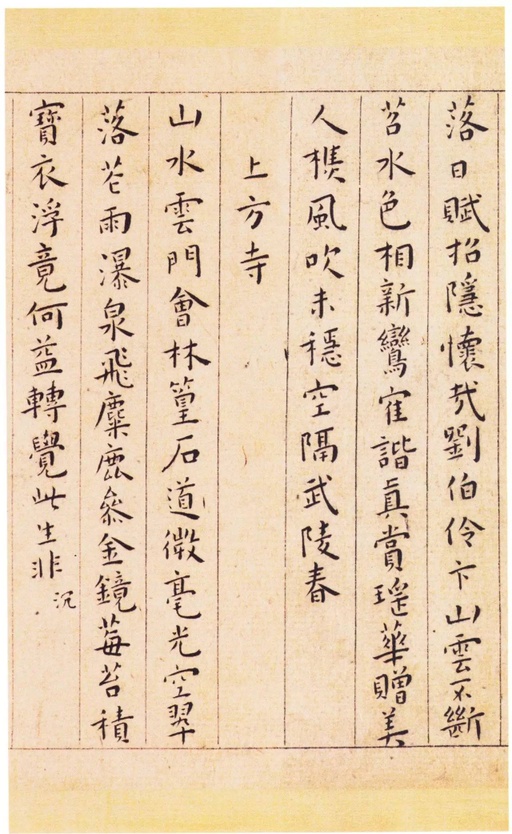 落日賦招隱懷哉劉伯伶卞山雲不斷
苕水色相新鸞寉諧真賞瑤華贈美
人檥風吹未穩空隔武陵春
上方寺
山水雲門會林篁石道微毫光空翠
落花雨瀑泉飛麋鹿叅金鏡莓苔積
寶衣浮竟何益轉覺此生非
沉